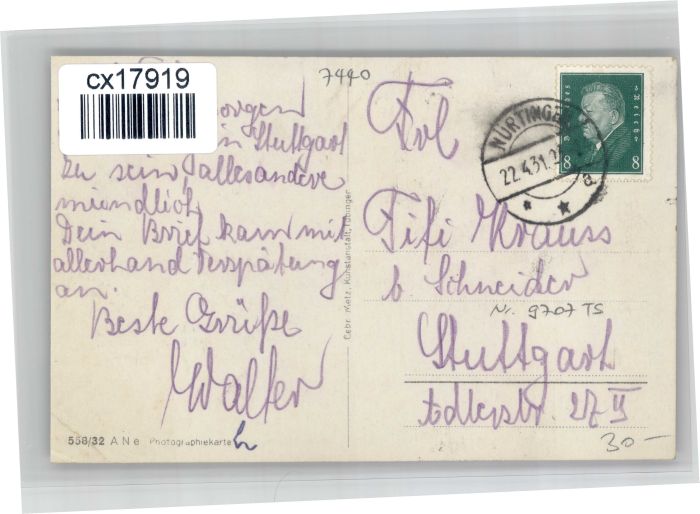 cx17919
7440
orgen
in Stuttgart
zu sein, alles andere
mündlich
Dein Brief kam mit
allerhand Verspätung
an.
Beste Grüße
Walter
558/32 A N e Photographiekarte
Gebr. Metz, Kunstanstalt, Tübingen
NÜRTINGEN
22.4.31.
a
Deutsches Reich
8 8
Frl
Fifi Krauss
b. Schneider
Nr. 9707 TS
Stuttgart
Adlerstr. 27 II
30 –